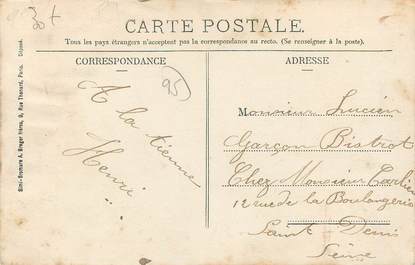 30t
CARTE POSTALE.
Tous les pays étrangers n'acceptent pas la correspondance au recto. (Se renseigner à la poste).
CORRESPONDANCE
ADRESSE
95
A la tienne
Henri
Monsieur Lucien
Garçon Bistrot
Chez Monsieur Carlier
12 rue de la Boulangerie
Saint-Denis
Seine
Simi-Bromure A. Breger frères, 9, Rue Thenard, Paris. Déposé.